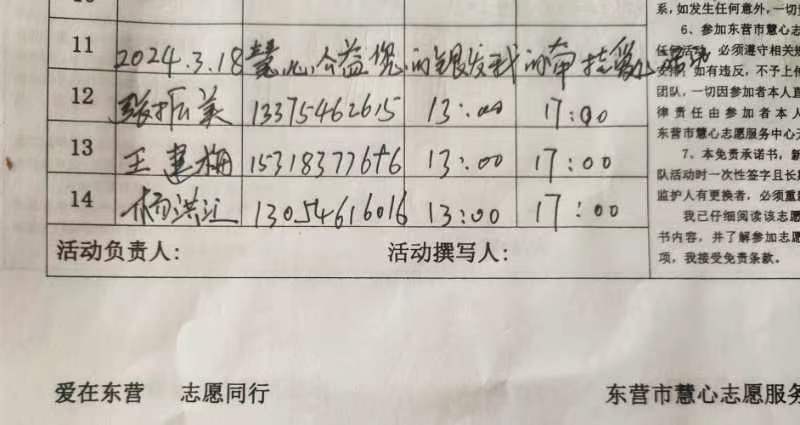 11 2024.3.18慧心公益您的银发我的牵挂爱心活动
12 张振美 13375462615 13:00 17:00
13 王惠梅 15318377676 13:00 17:00
14 杨洪江 13054616016 13:00 17:00
活动负责人: 活动撰写人:
系,如发生任何意外,一切
6、参加东营市慧心志
任何活动,必须遵守相关
如有违反,不予上
团队,一切因参加者本人
律责任由参加者本人
东营市慧心志愿服务中心
7、本免责承诺书,新
队活动时一次性签字且长
监护人有更换者,必须重
我已仔细阅读该志愿
书内容,并了解参加志愿
项,我接受免责条款.
爱在东营 志愿同行
东营市慧心志愿服务